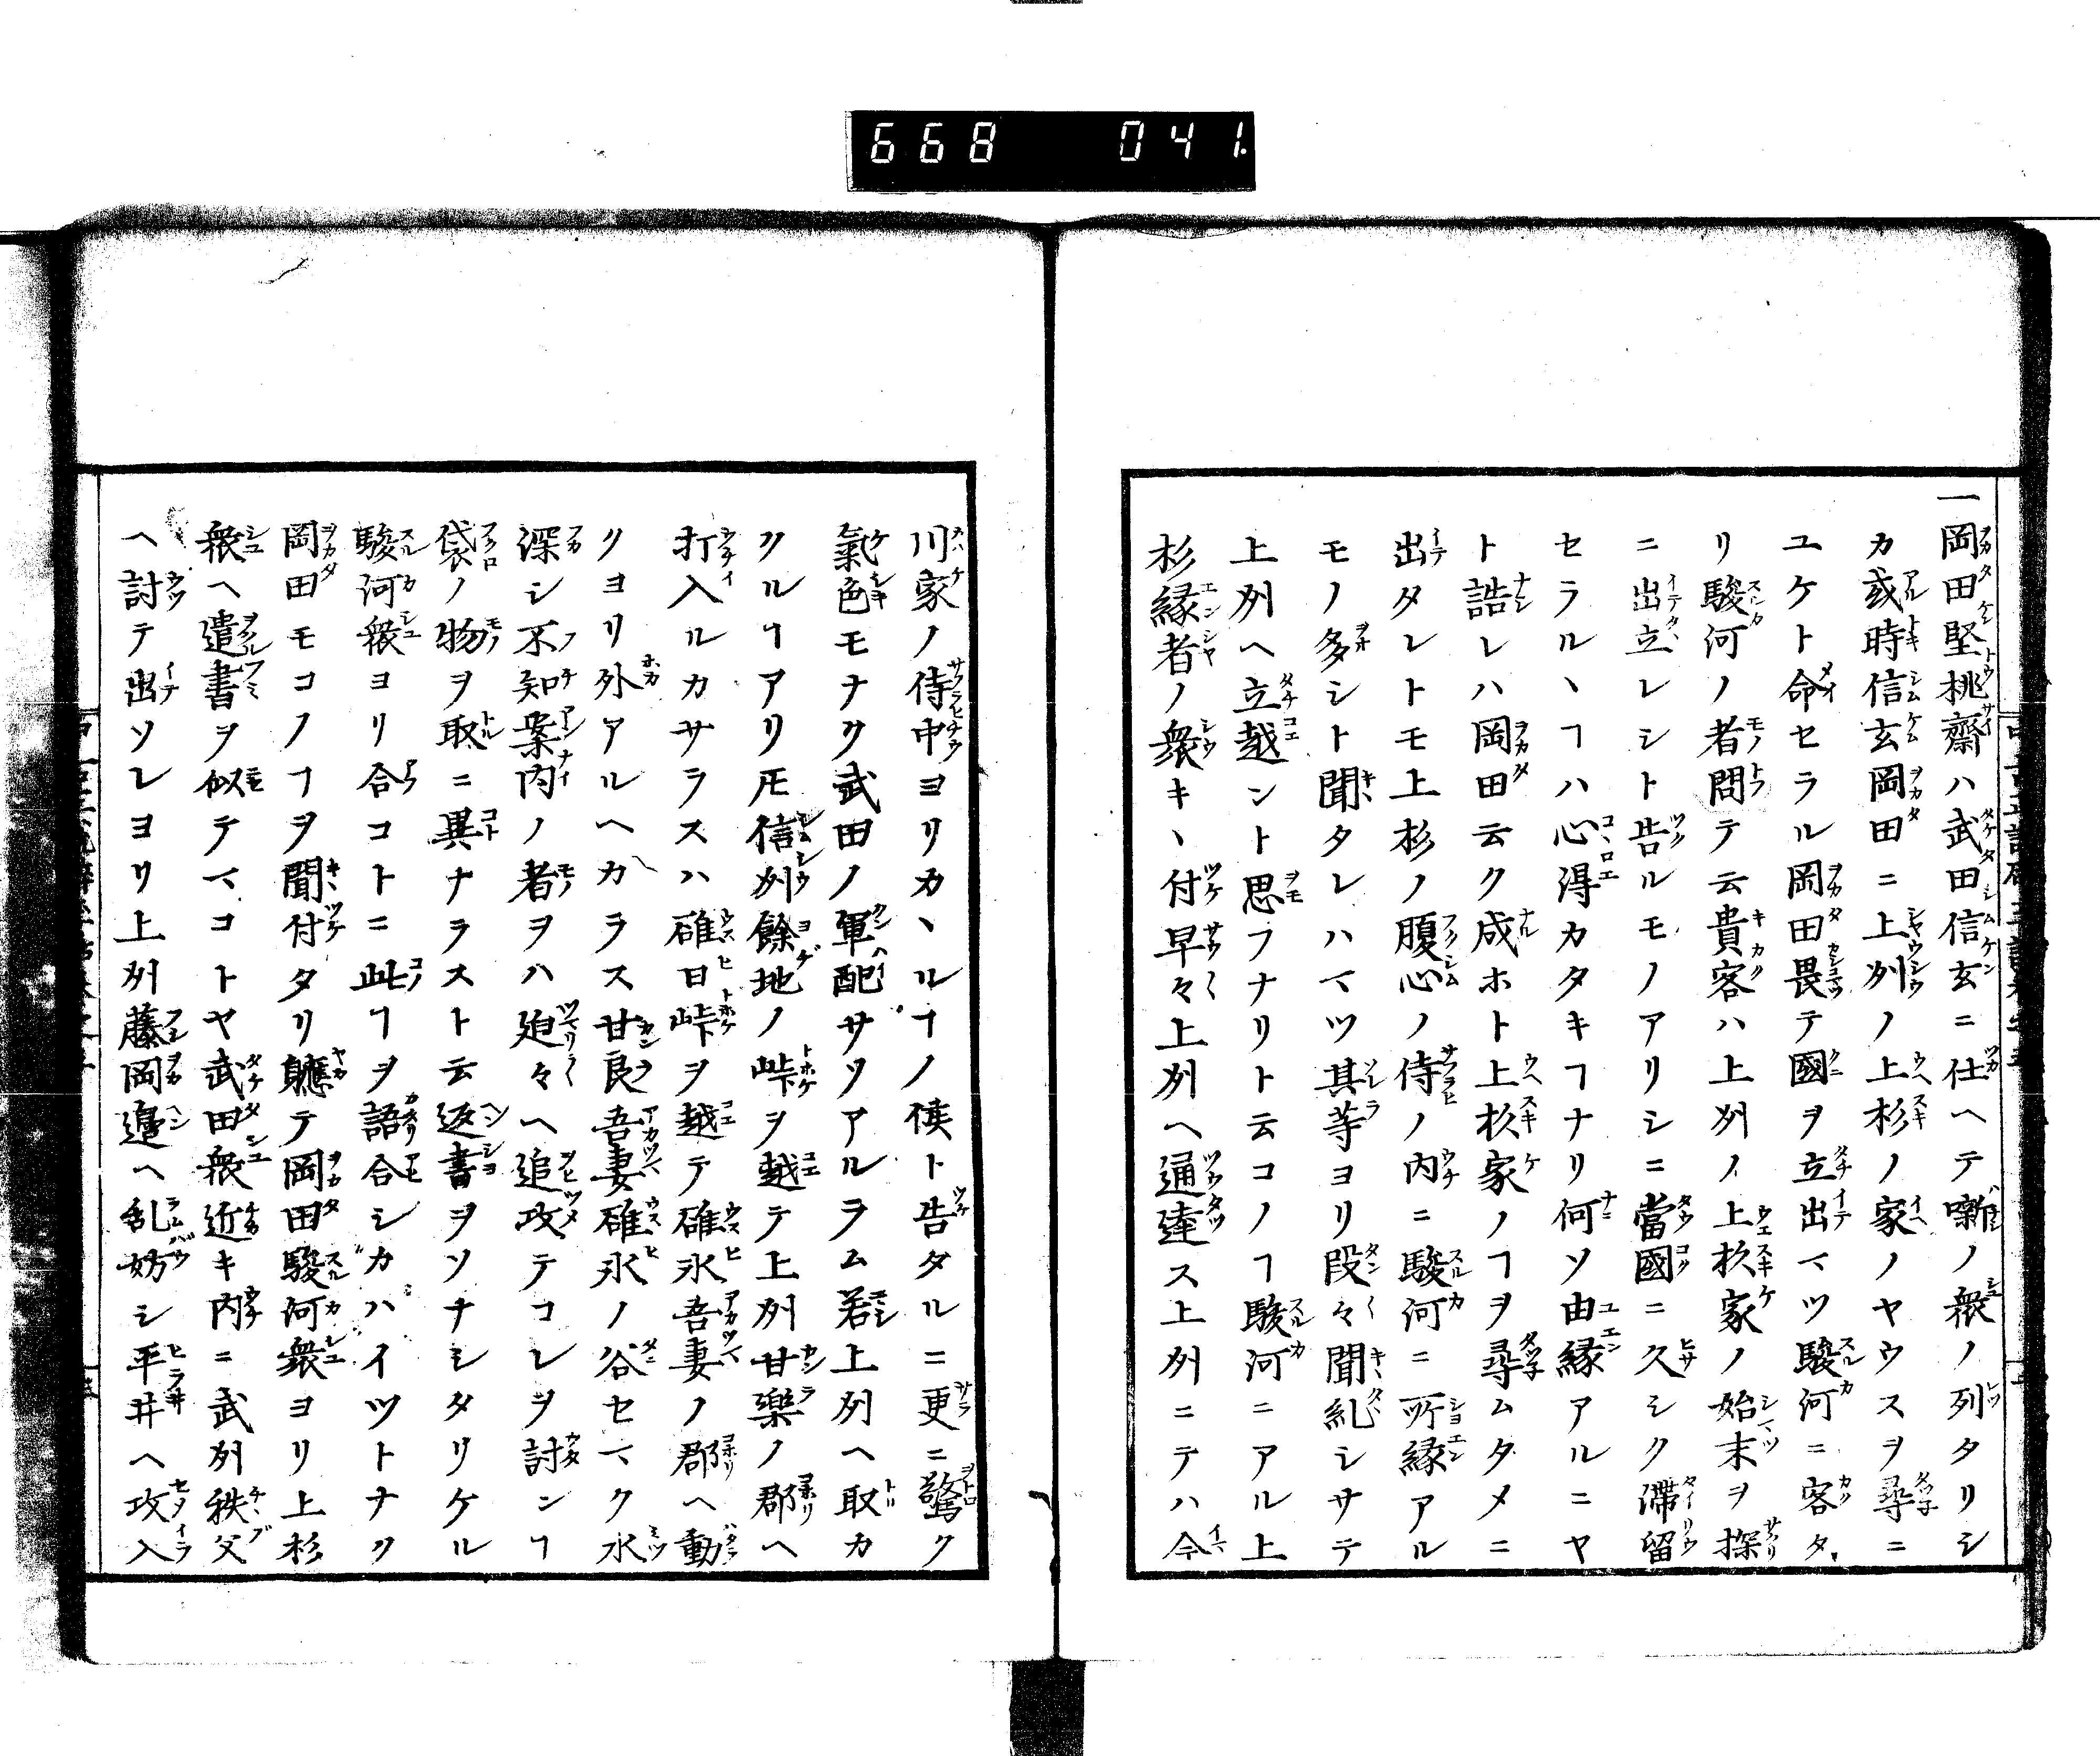 668 041
一岡田堅桃齋ハ武田信玄ニ仕ヘテ噺ノ衆ノ列タリシ
カ或時信玄岡田ニ上刕ノ上杉ノ家ノヤウスヲ尋ニ
ユケト命セラル岡田畏テ國ヲ立出マツ駿河ニ客タ
リ駿河ノ者問テ云貴客ハ上刕ノ上杦家ノ始末ヲ探
ニ出立レシト告ルモノアリシニ當國ニ久シク滯留
セラルヽヿハ心得カタキヿナリ何ソ由縁アルニヤ
ト誥レハ岡田云ク成ホト上杦家ノヿヲ尋ムタメニ
出タレトモ上杉ノ腹心ノ侍ノ内ニ駿河ニ所縁アル
モノ多シト聞タレハマツ其等ヨリ段々聞糺シサテ
上刕ヘ立越ント思フナリト云コノヿ駿河ニアル上
杉縁者ノ衆キヽ付早々上刕ヘ通達ス上刕ニテハ今
川家ノ侍中ヨリカヽルヿノ候ト告タルニ更ニ驚ク
氣色モナク武田ノ軍配サソアルラム若上刕ヘ取カ
クルヿアリ𪜈信刕餘地ノ峠ヲ越テ上刕甘樂ノ郡ヘ
打入ルカサラスハ碓日峠ヲ越テ碓氷吾妻ノ郡ヘ動
クヨリ外アルヘカラス甘良吾妻碓氷ノ谷セマク水
深シ不知案内ノ者ヲハ迫々ヘ追攻テコレヲ討ンヿ
袋ノ物ヲ取ニ異ナラスト云返書ヲソナシタリケル
駿河衆ヨリ合コトニ此ヿヲ語合シカハイツトナク
岡田モコノヿヲ聞付タリ軈テ岡田駿河衆ヨリ上杉
衆ヘ遣書ヲ似テマコトヤ武田衆近キ内ニ武刕秩父
ヘ討テ出ソレヨリ上刕藤岡邉ヘ乱妨シ平井ヘ攻入